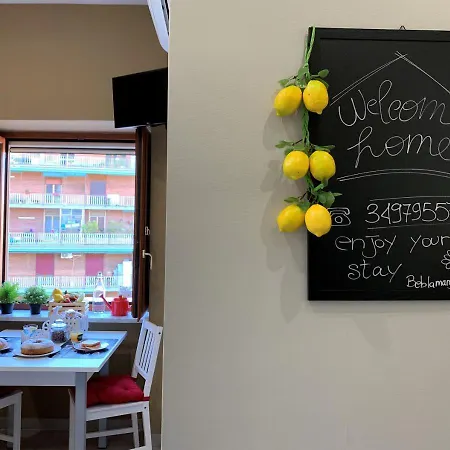 Welcom
home
3497955
enjoy your
stay &
Beblaman